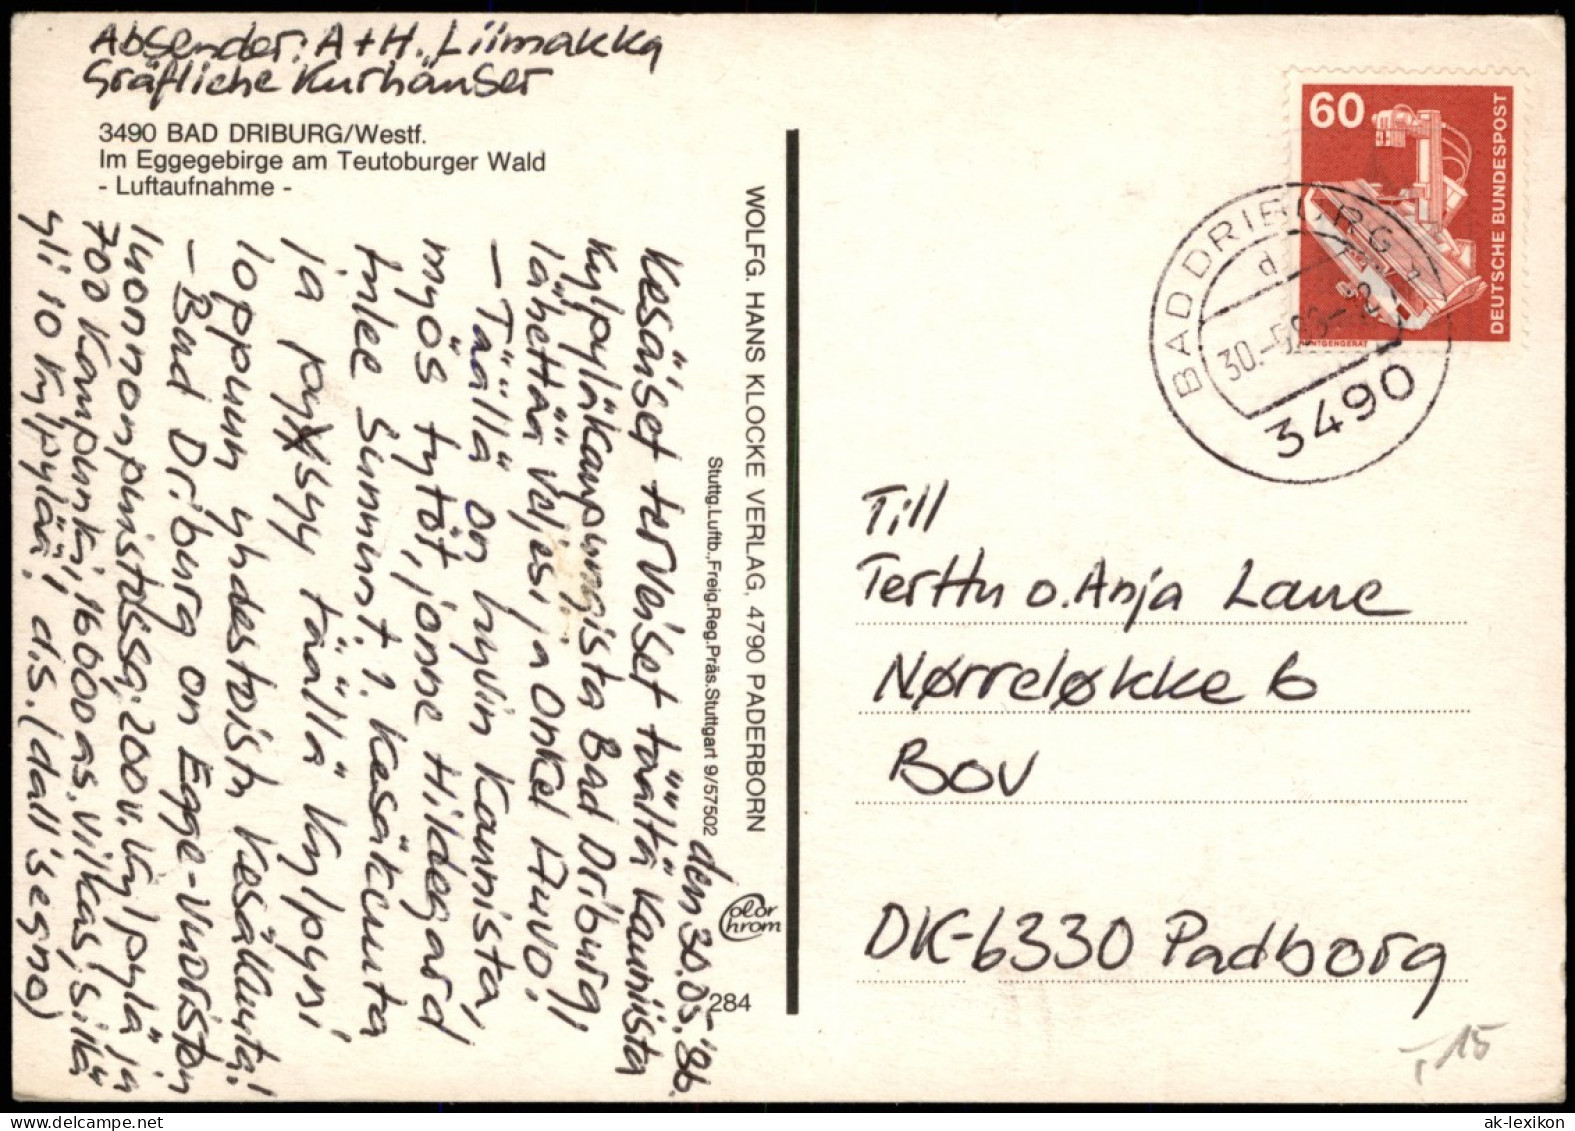 Absender: A+H. Liimakka
Gräfliche Kurhäuser
3490 BAD DRIBURG/Westf.
Im Eggegebirge am Teutoburger Wald
- Luftaufnahme -
den 30.05.'86.
Kesäiset terveiset täältä kauniista
Kylpyläkaupungista Bad Driburg,
lähettää veljesi ja Onkel Auvo!
— Täällä on hyvin kaunista,
myös tytöt, jonne Hildegard
tulee Summit. 1. Kesäkuuta
ja pysyy täällä kylpyni
loppuun yhdestoista Kesäkuuta!
— Bad Driburg on Egge-Vuoriston
luonnonpuistossa. 200 v. kylpylä ja
700 kaupunki, 16000 as. vilkas, sillä
yli 10 kylpylää! d.S. (dall'segno)
WOLFG. HANS KLOCKE VERLAG, 4790 PADERBORN
Stuttg.Luftb.,Freig.Reg.Präs.Stuttgart 9/57502
Color
Chrom
284
60
DEUTSCHE BUNDESPOST
RÖNTGENGERÄT
BAD DRIBURG 1
d
30.-5.86-
3490
Till
Terttu o. Anja Laue
Nørreløkke 6
Bov
DK-6330 Padborg
-,15
ak-lexikon